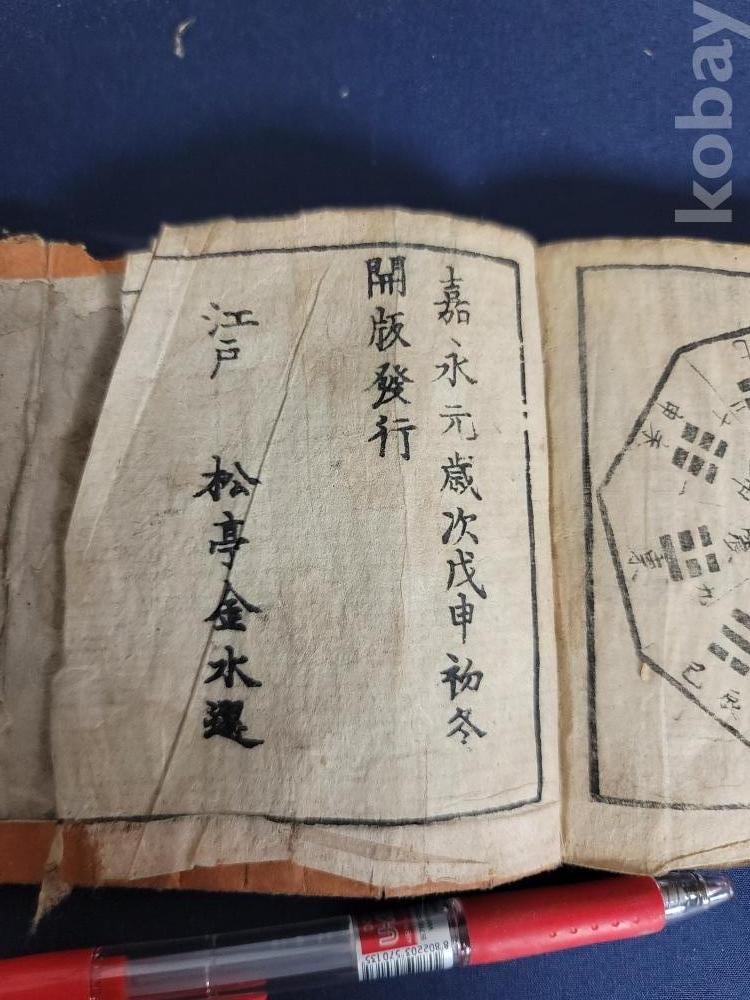 嘉永元歳次戊申初冬
開版發行
江戸 松亭金水選
kobay
8 802203 570135